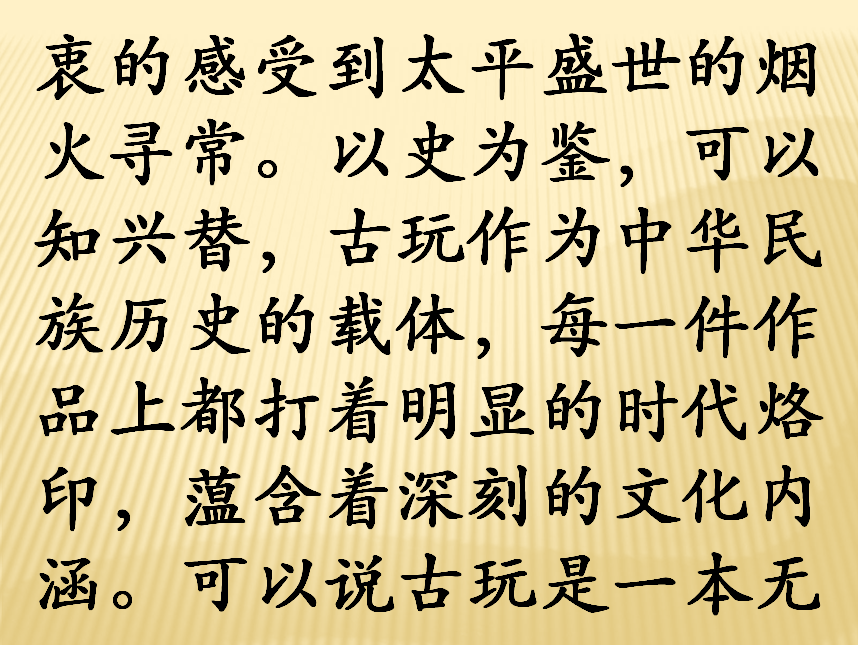 衷的感受到太平盛世的烟
火寻常。以史为鉴，可以
知兴替，古玩作为中华民
族历史的载体，每一件作
品上都打着明显的时代烙
印，蕰含着深刻的文化内
涵。可以说古玩是一本无